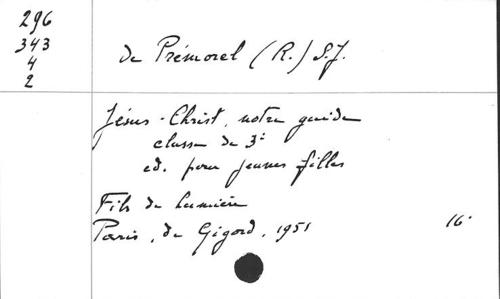 296
343
4
2
de Prémorel (R.) S.J.
Jésus-Christ, notre guide
classe de 3e
ed. pour jeunes filles
Fils de Lumière
Paris, de Gigord, 1951 16°